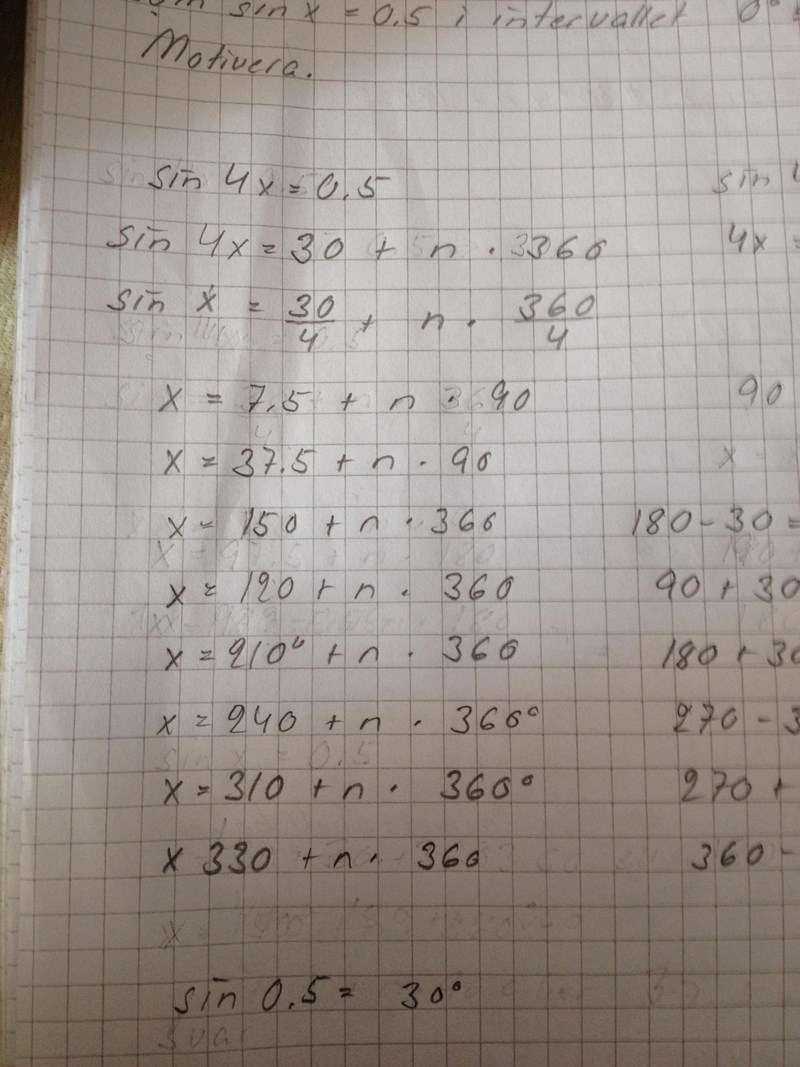 sin x = 0.5 i intervallet 0°
Motivera.
sin 4x = 0.5 sin
sin 4x = 30 + n · 360 4x =
sin x = 30/4 + n · 360/4
x = 7.5 + n · 90 90
x = 37.5 + n · 90 x
x = 150 + n · 360 180 - 30 =
x = 120 + n · 360 90 + 30
x = 210° + n · 360 180 + 30
x = 240 + n · 360° 270 - 3
x = 310 + n · 360° 270 +
x 330 + n · 360 360 -
sin 0.5 = 30°
Svar